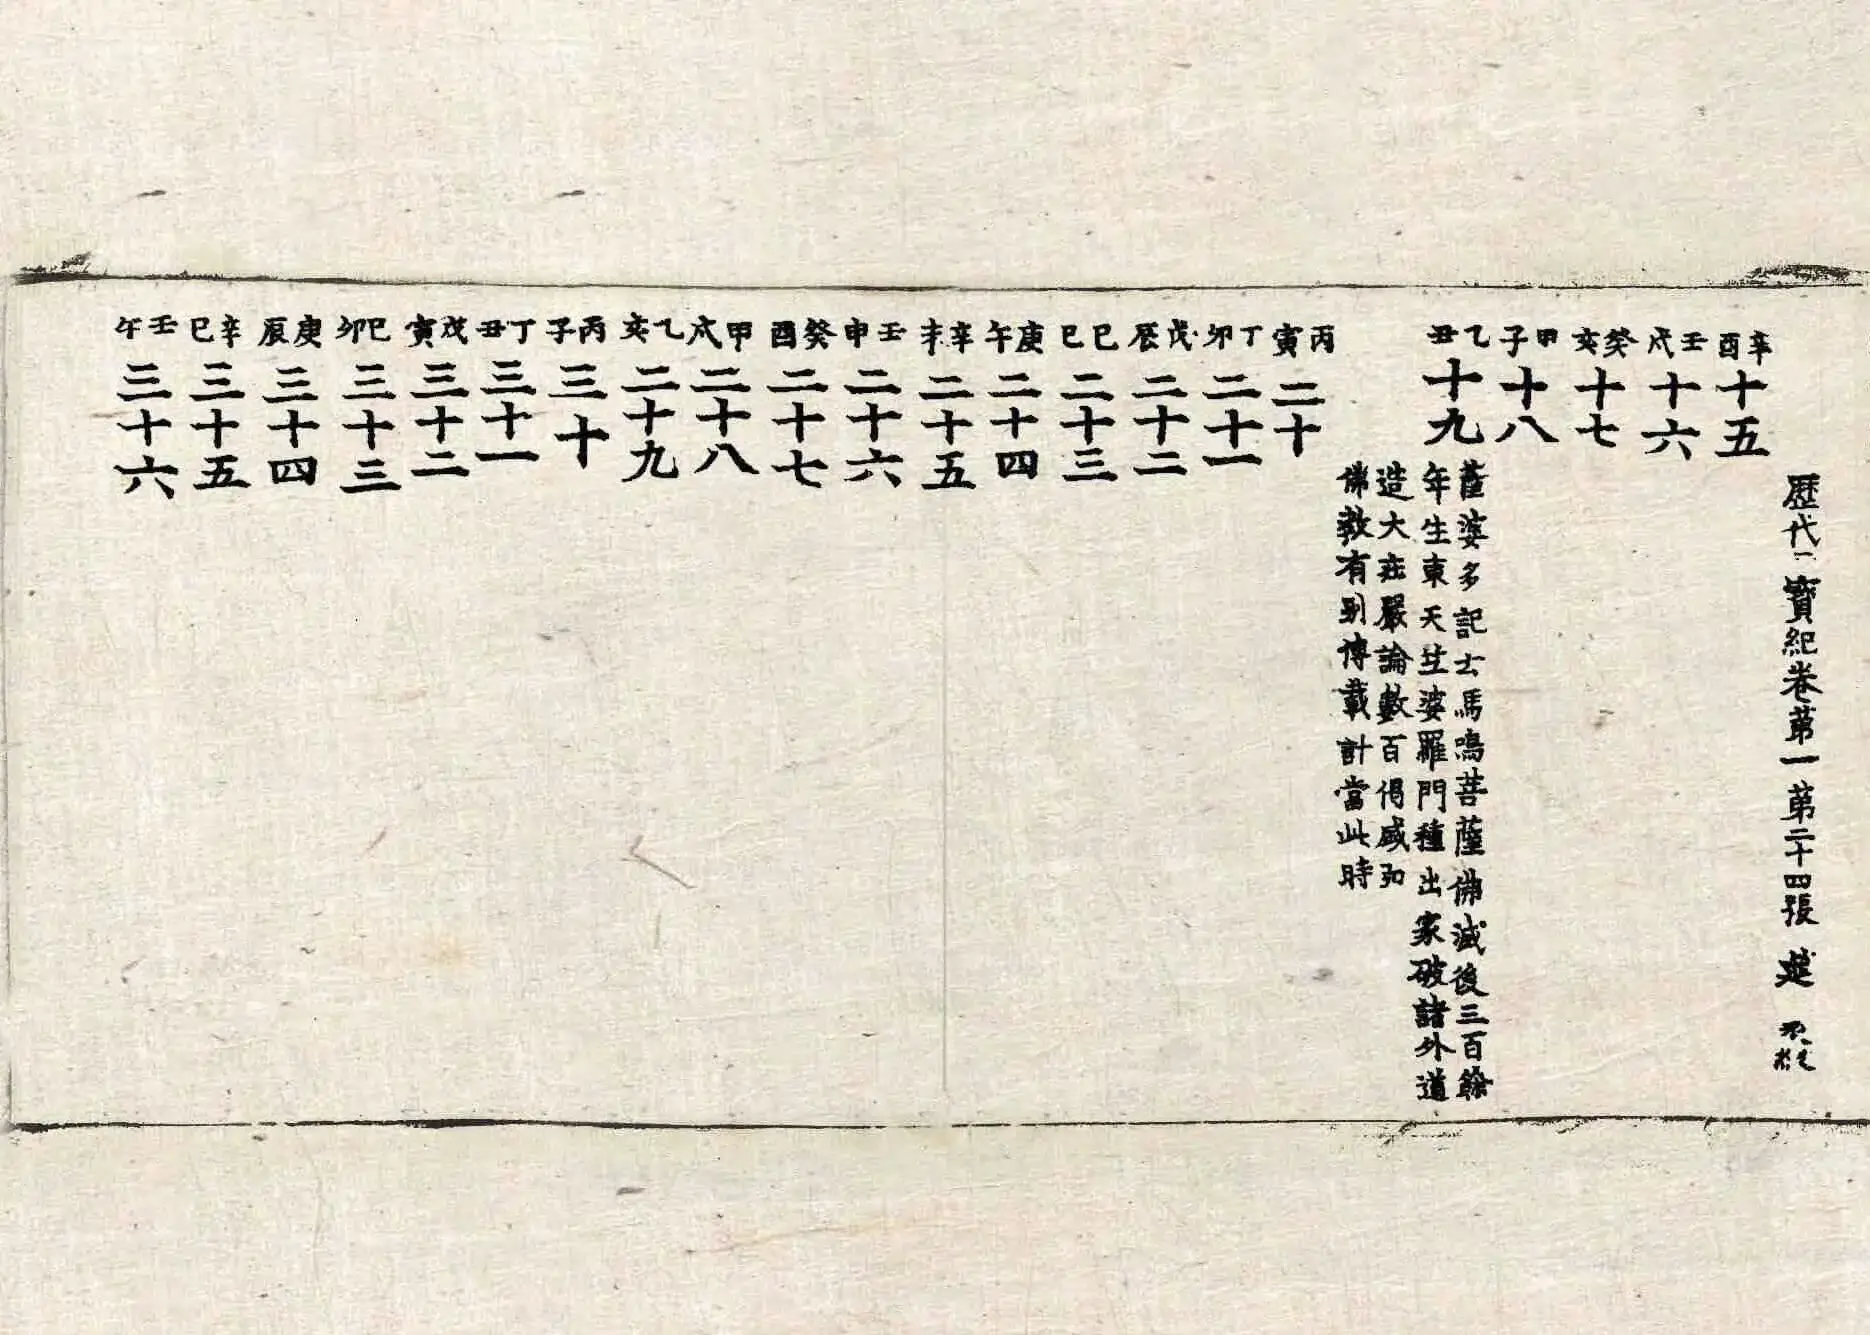 歷代三寶紀卷第一第二十四張 楚
辛酉十五
壬戌十六
癸亥十七
甲子十八
乙丑十九
薩婆多記士馬鳴菩薩佛滅後三百餘
年生東天竺婆羅門種出家破諸外道
造大莊嚴論數百偈盛弘
佛教有別傳載計當此時
丙寅二十
丁卯二十一
戊辰二十二
己巳二十三
庚午二十四
辛未二十五
壬申二十六
癸酉二十七
甲戌二十八
乙亥二十九
丙子三十
丁丑三十一
戊寅三十二
己卯三十三
庚辰三十四
辛巳三十五
壬午三十六